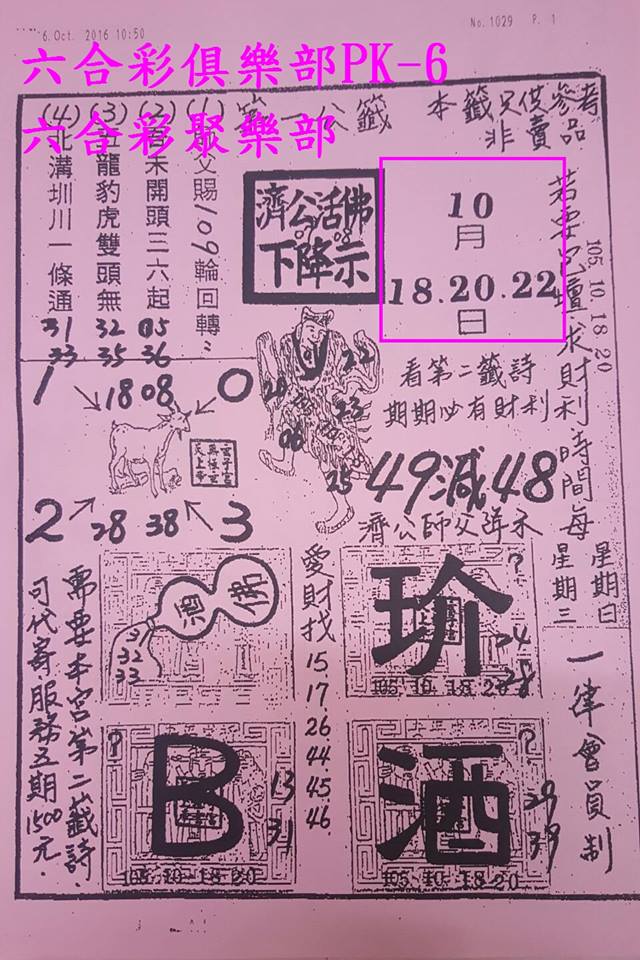 6.Oct. 2016 10:50
No.1029 P. 1
六合彩俱樂部PK-6
六合彩聚樂部
本籤只供參考
非賣品
公籤
(1)
父賜109輪回轉
(2)
未開頭三六起
05
36
(3)
龍豹虎雙頭無
32
35
(4)
北溝圳川一條通
31
33
濟公活佛
下降示
10
月
18.20.22
日
105.10.18 20
若要包壇求財利時間每
星期日
星期三
一律會員制
看第二籤詩
期期必有財利
49減48
濟公師父
1
18 08
0
2
28 38
3
22
23
06
25
愛財找
15
17
26
44
45
46
佛
酒
32
33
玠
?
24
28
105.10.18 20
B
?
13
31
105.10.18 20
酒
?
29
39
105.10.18 20
需要本宮第二籤詩
可代寄服務五期1500元.